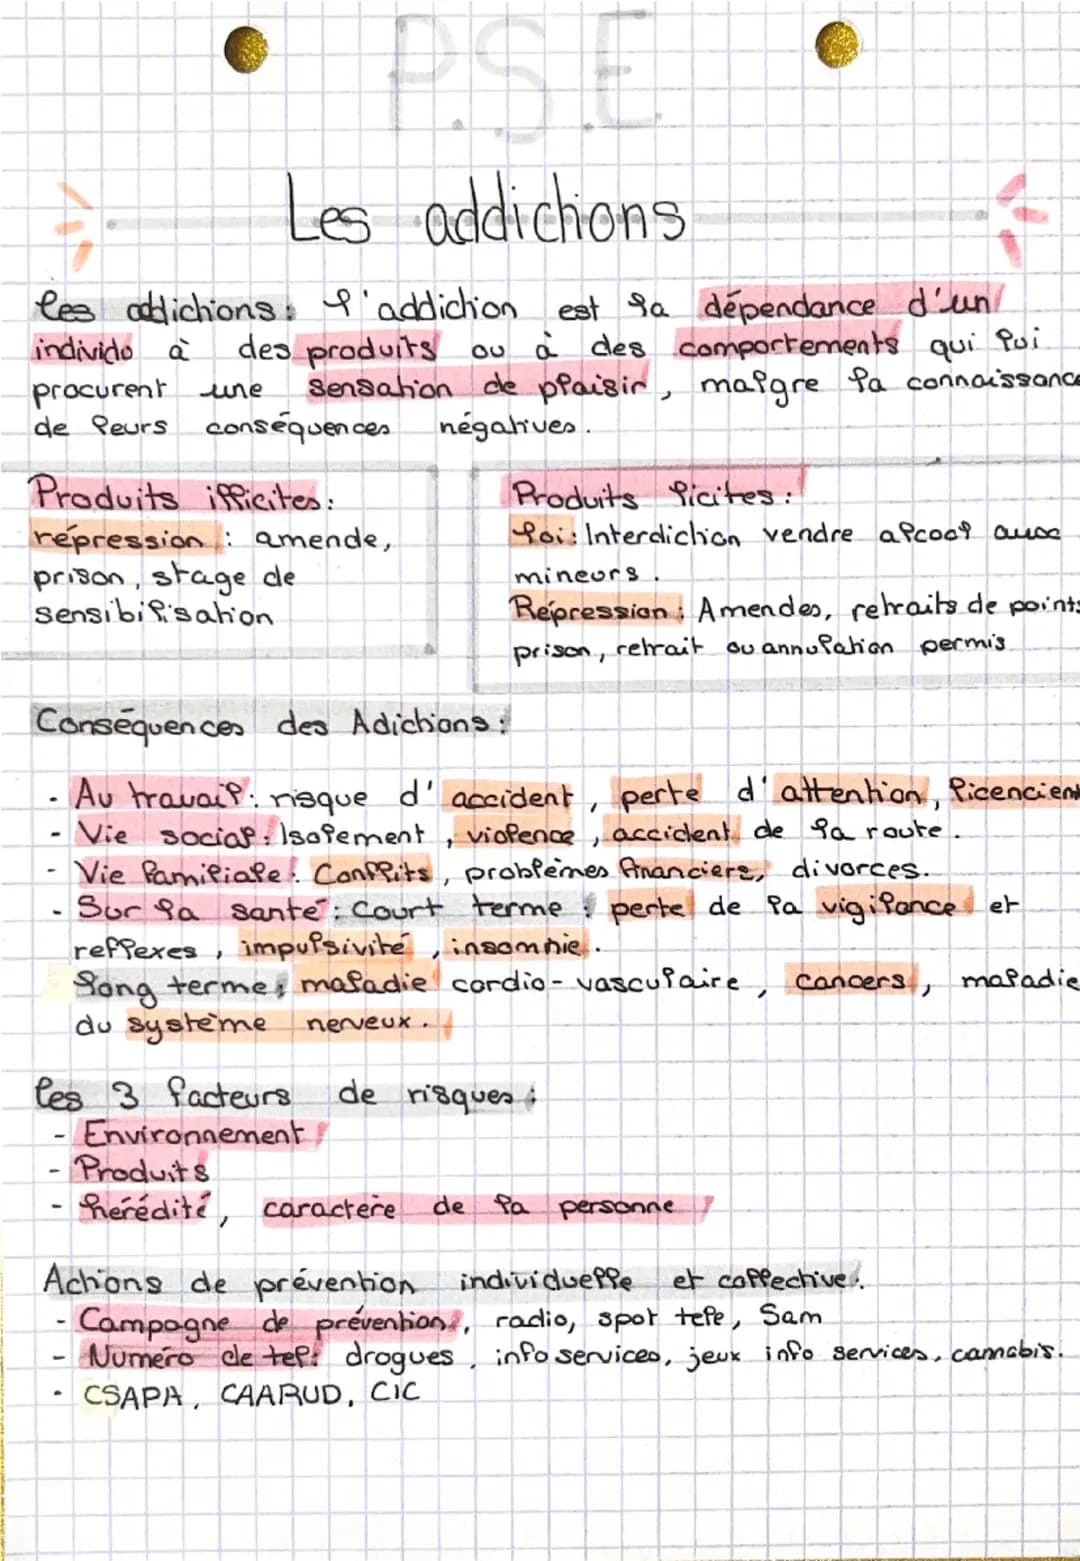 P.S.E
Les addictions
les addictions : l'addiction est la dépendance d'un
individo à des produits ou à des comportements qui lui
procurent une sensation de plaisir, malgre la connaissance
de leurs conséquences négatives.
Produits illicites :
répression : amende,
prison, stage de
sensibilisation
Produits licites :
loi : Interdiction vendre alcool aux
mineurs.
Répression : Amendes, retraits de points
prison, retrait ou annulation permis
Conséquences des Adictions :
- Au travail : risque d'accident, perte d'attention, licenciem
- Vie social : Isolement, violence, accident de la route.
- Vie familiale : Conflits, problèmes financiers, divorces.
- Sur la santé : Court terme : perte de la vigilance et
reflexes, impulsivité, insomnie.
long terme : maladie cardio-vasculaire, cancers, maladie
du système nerveux.
les 3 facteurs de risques :
- Environnement
- Produits
- hérédité, caractère de la personne
Actions de prévention individuelle et collective :
- Campagne de prévention, radio, spot tele, Sam
- Numéro de tel : drogues, info services, jeux info services, cannabis.
- CSAPA, CAARUD, CIC